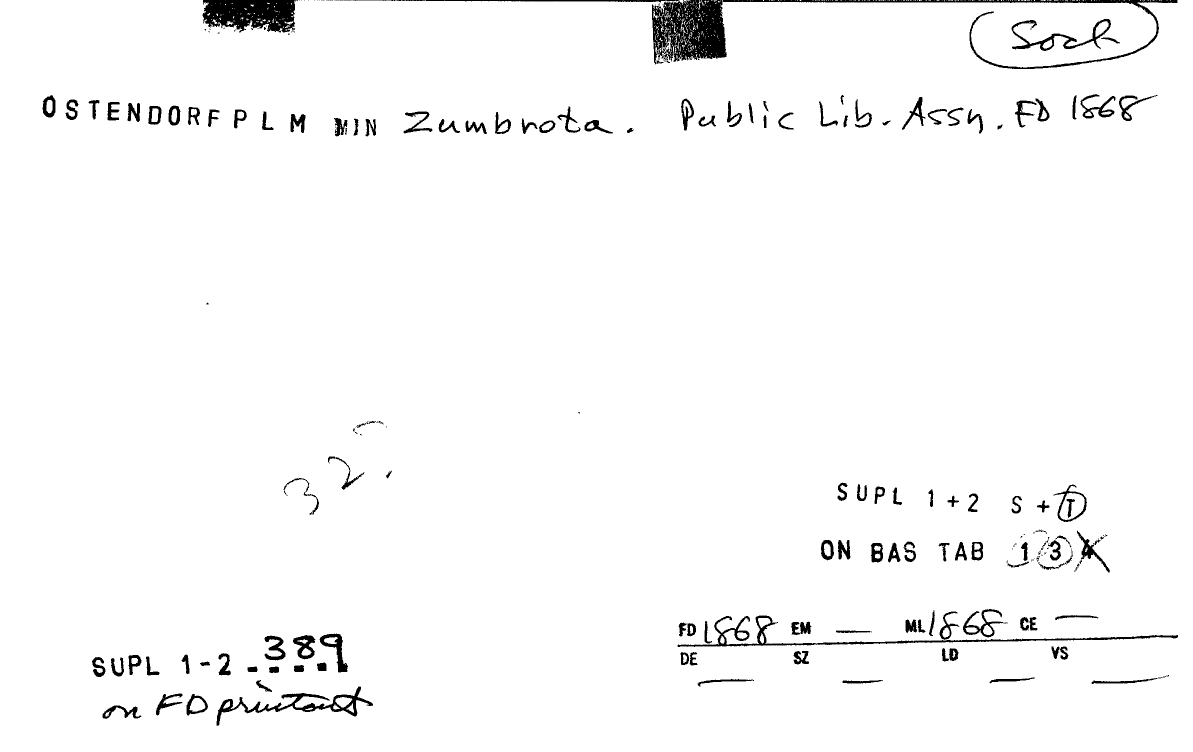 Soch
OSTENDORF P L M MIN Zumbrota. Public Lib. Assn. FD 1868
32.
SUPL 1+2 S + T
ON BAS TAB 1 3 4
FD 1868 EM — ML 1868 CE —
DE SZ LD VS
— — — —
SUPL 1-2 . 389
on FD printout